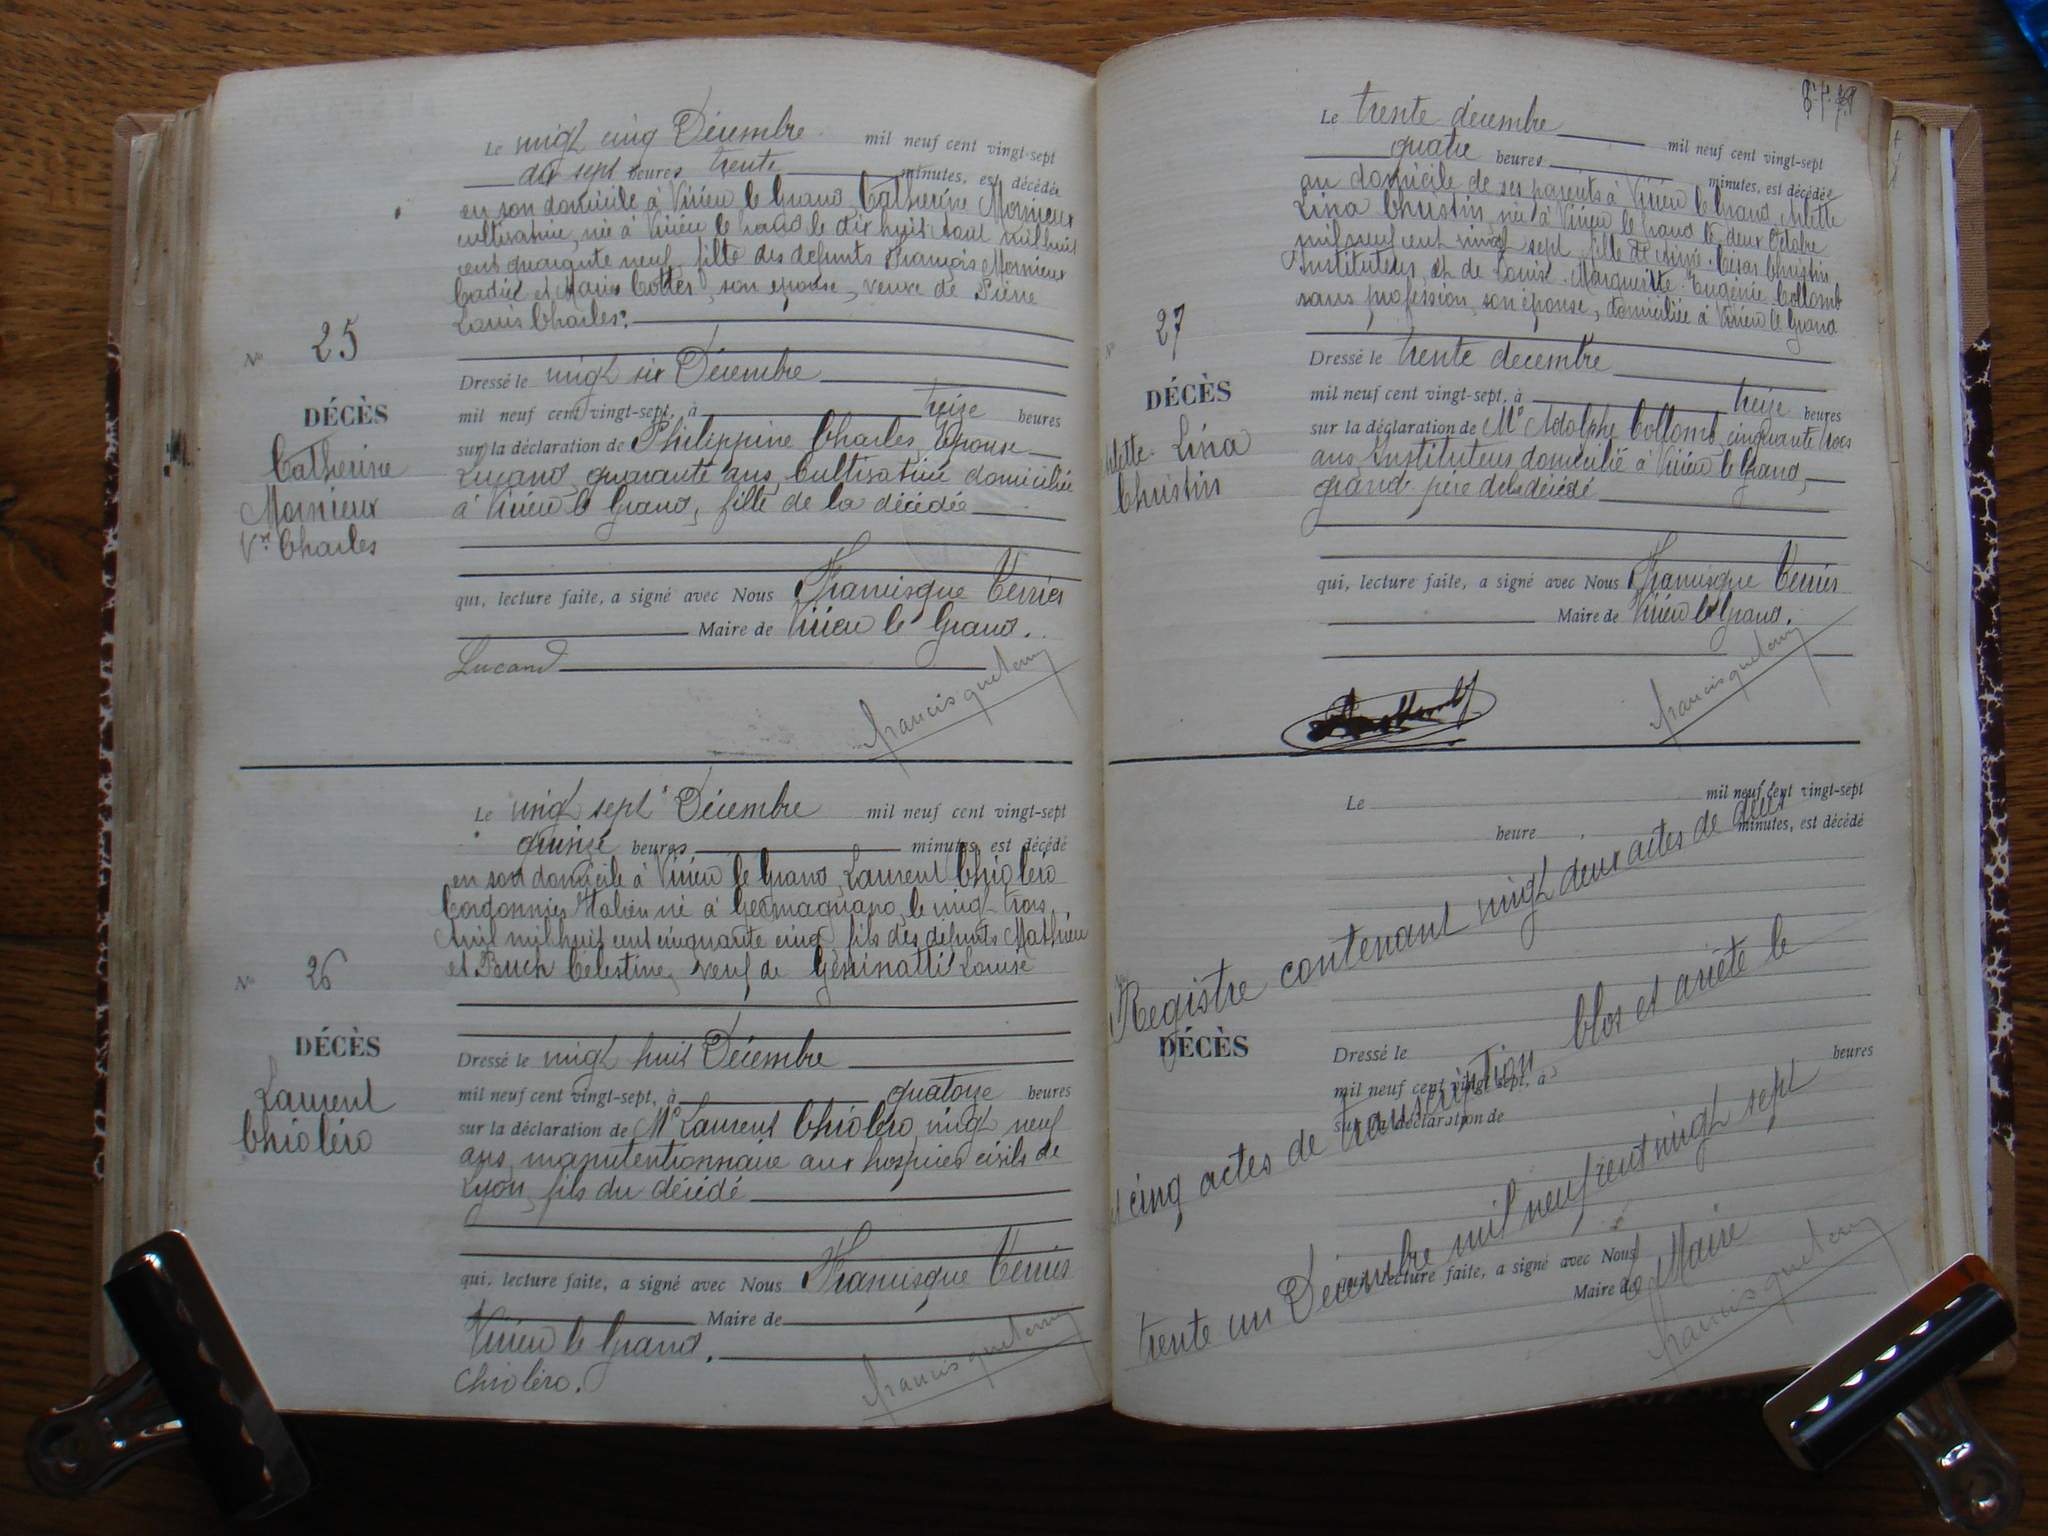 Le vingt cinq Décembre mil neuf cent vingt-sept
dix sept heures trente minutes, est décédée
en son domicile à Virieu le Grand, Catherine Mornieux
cultivatrice, née à Virieu le Grand le dix huit Aout mil huit
cent quarante neuf, fille des défunts François Mornieux
Cadiel et Marie Cottet, son épouse, veuve de Pierre
Louis Charles.
No 25
Dressé le vingt six Décembre
DÉCÈS
mil neuf cent vingt-sept, à treize heures
sur la déclaration de Philippine Charles, Epouse
Catherine
Lucand, quarante ans, Cultivatrice domiciliée
Mornieux
à Virieu le Grand, fille de la décédée
Ve Charles
qui, lecture faite, a signé avec Nous Francisque Terrier
Maire de Virieu le Grand.
Lucand
francisque terrier
Le vingt sept Décembre mil neuf cent vingt-sept
quinze heures minutes, est décédé
en son domicile à Virieu le Grand, Laurent Chioléro
Cordonnier Italien né à Germagnano, le vingt-trois
Avril mil huit cent cinquante cinq, fils des défunts Mathieu
et Buch Célestine, veuf de Géninatti Louise
No 26
DÉCÈS
Dressé le vingt huit Décembre
Laurent
mil neuf cent vingt-sept, à quatorze heures
Chioléro
sur la déclaration de Mr Laurent Chioléro, vingt neuf
ans, manutentionnaire aux hospices civils de
Lyon, fils du décédé
qui, lecture faite, a signé avec Nous Francisque Terrier
Maire de
Virieu le Grand.
Chioléro.
francisque terrier
Le trente décembre mil neuf cent vingt-sept
quatre heures minutes, est décédée
au domicile de ses parents à Virieu le Grand, Arlette
Lina Christin, née à Virieu le Grand le deux Octobre
mil neuf cent vingt sept, fille de César Christin
Instituteur, et de Louise Marguerite Eugénie Collomb
sans profession, son épouse, domiciliée à Virieu le Grand
No 27
Dressé le trente decembre
DÉCÈS
mil neuf cent vingt-sept, à treize heures
sur la déclaration de Mr Adolphe Collomb, cinquante trois
Arlette Lina
ans, Instituteur domicilié à Virieu le Grand,
Christin
grand-père de la décédé
qui, lecture faite, a signé avec Nous Francisque Terrier
Maire de Virieu le Grand.
francisque terrier
Le mil neuf cent vingt-sept
heure minutes, est décédé
Registre contenant vingt deux actes de décès
DÉCÈS
Dressé le
mil neuf cent vingt-sept, à heures
sur la déclaration de
et cinq actes de transcription clos et arrêté le
trente un Décembre mil neuf cent vingt sept
qui, lecture faite, a signé avec Nous
Maire de
Le Maire
francisque terrier